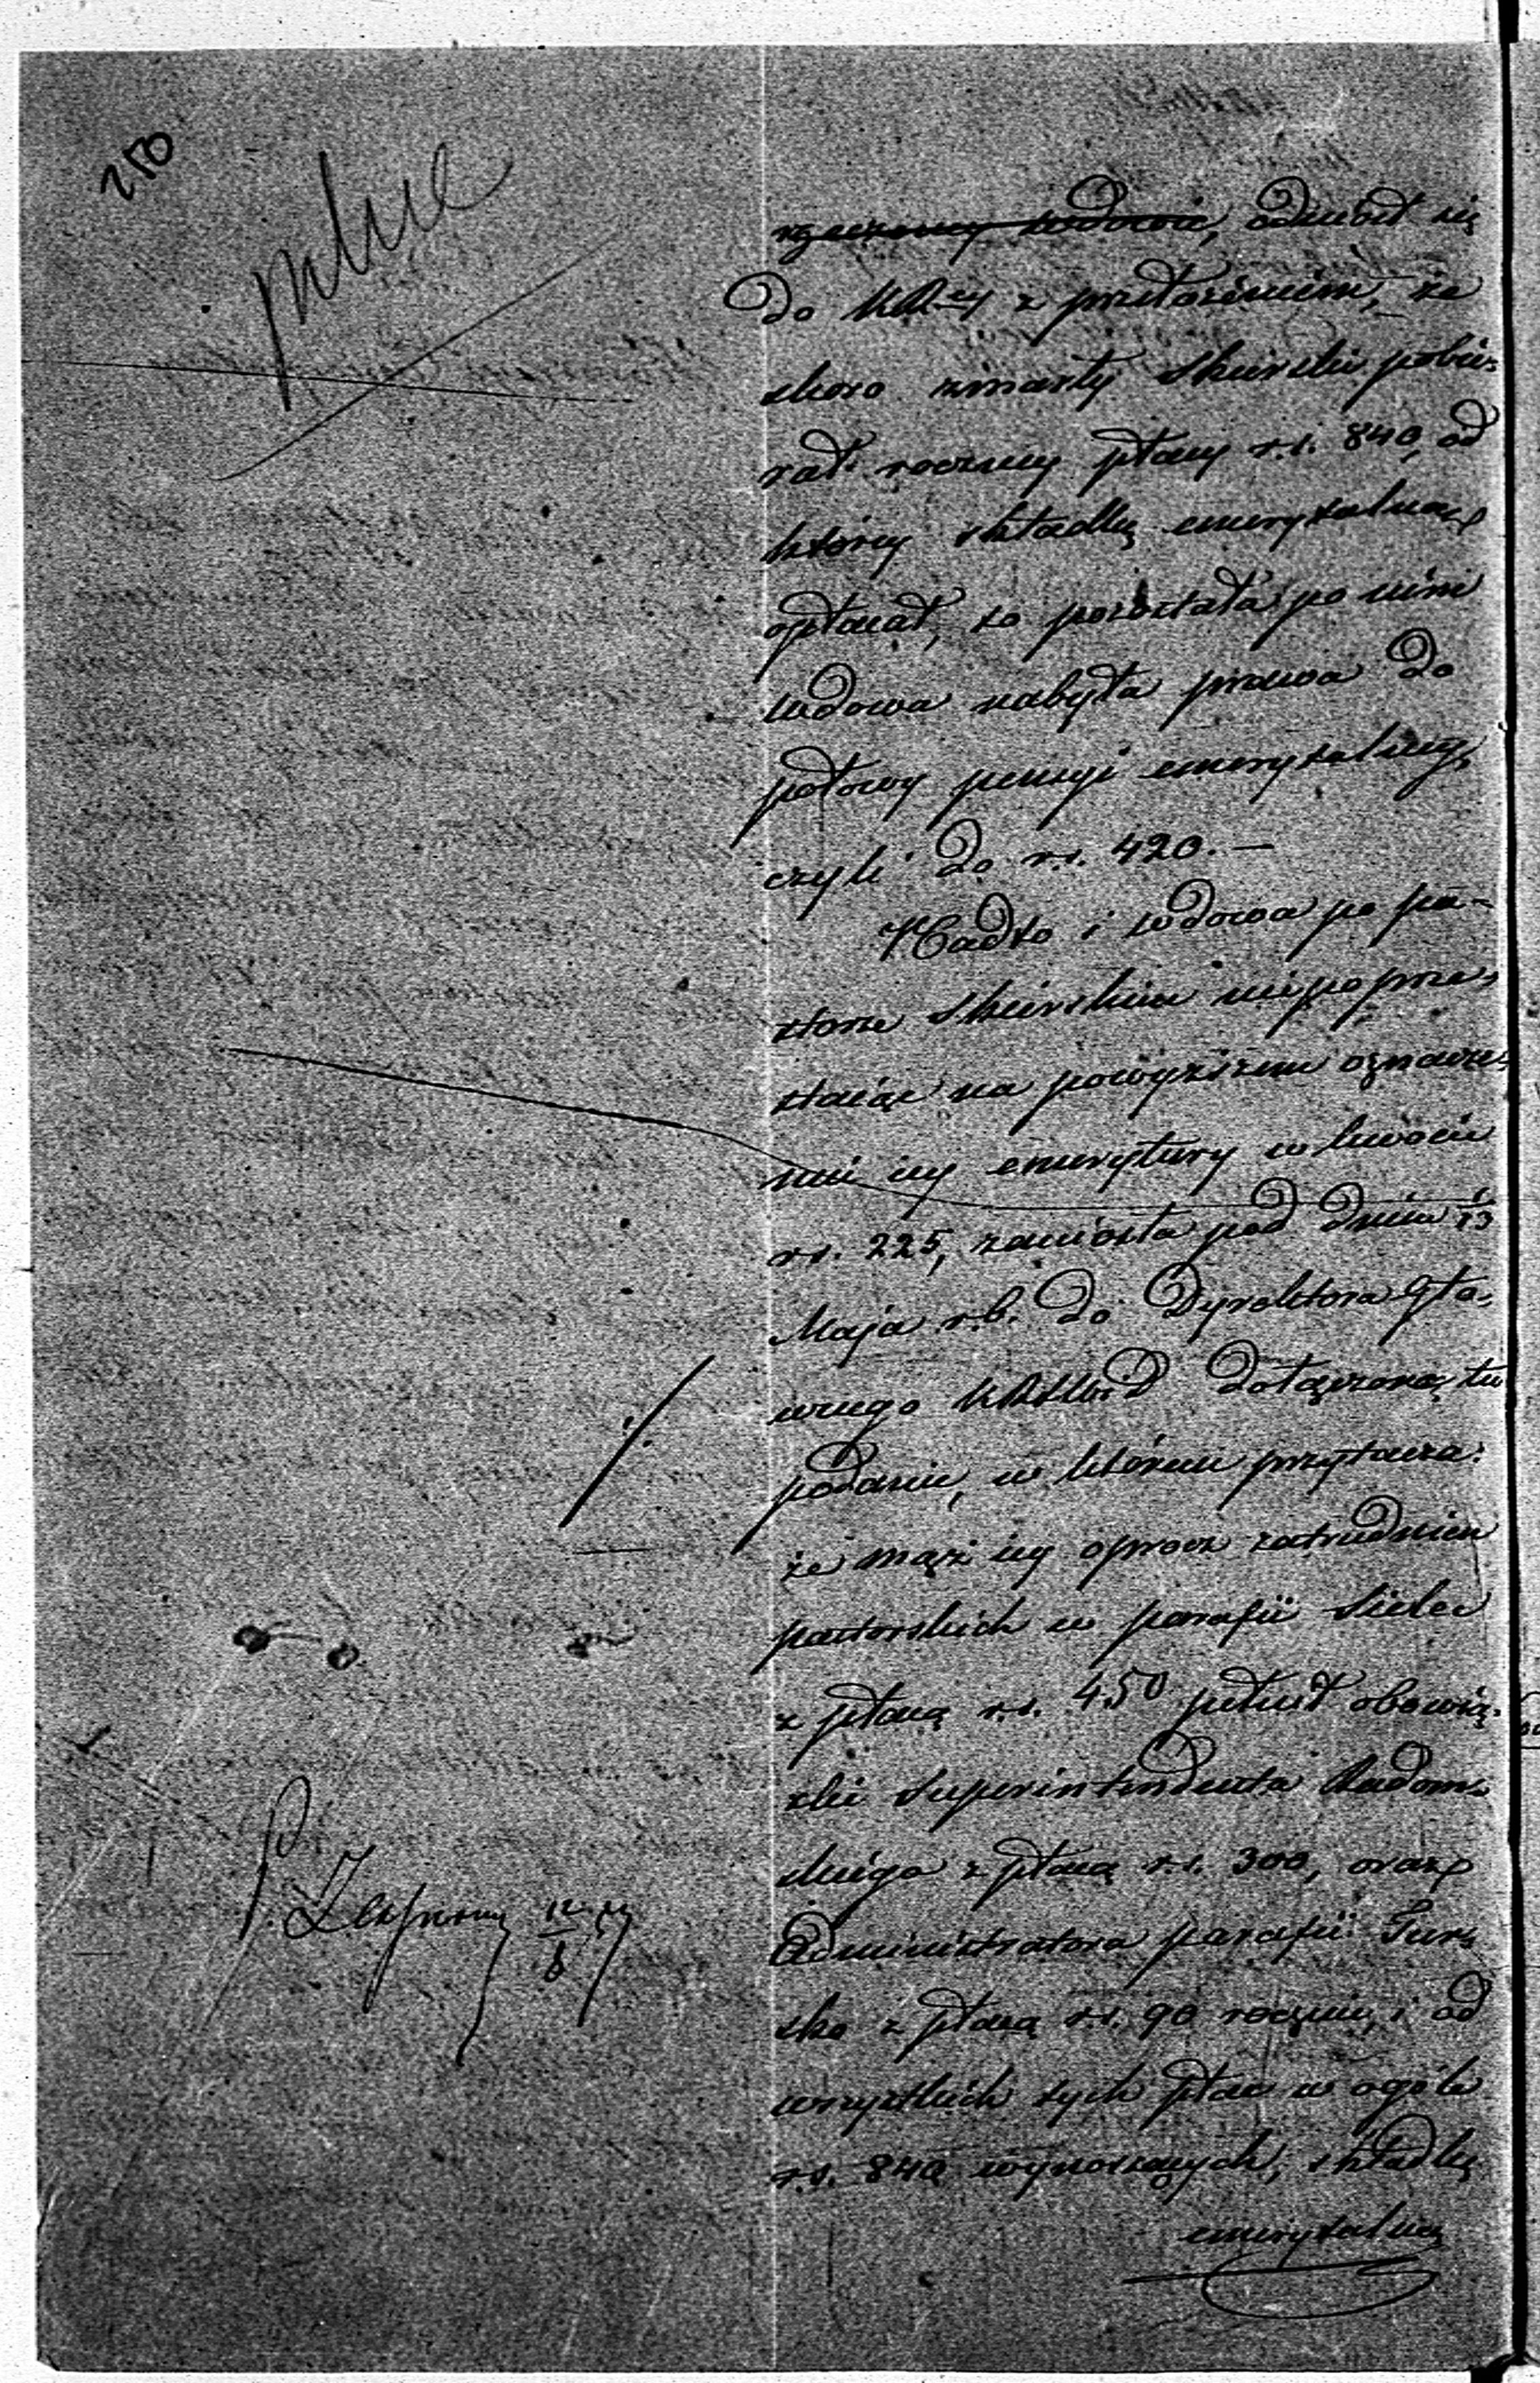 250
pilne
rzeczoney wdowie, odniósł się
do KRz-y z przełożeniem, że
skoro zmarły Skierski pobie-
rał roczney płacy r.s. 840, od
którey składkę emerytalną
opłacał, to pozostała po nim
wdowa nabyła prawa do
połowy pensyi emerytalney,
czyli do r.s. 420. —
Nadto i wdowa po pa-
storze Skierskim niepoprze-
stając na powyższem oznacze-
niu iey emerytury w kwocie
r.s. 225, zaniosła pod dniem 13
Maja r.b. do Dyrektora Głó-
wnego dołączone tu
podanie, w którem przytacza:
że mąż iey oprocz zatrudnień
pastorskich w parafii Sielec
z płacą r.s. 450 pełnił obowią-
zki Superintendenta Radom-
skiego z płacą r.s. 300, oraz
Administratora parafii Tur-
sko z płacą r.s. 90 rocznie, i od
wszystkich tych płac w ogóle
r.s. 840 wynoszących, składkę
emerytalną